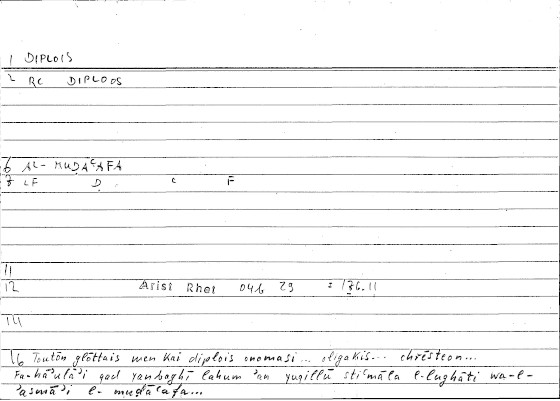 1 DIPLOIS
2 RC DIPLOOS
6 AL-MUḌĀʿAFA
8 LF Ḍ ʿ F
11
12 Arist Rhet 04b 29 : 176.11
14
16 Toutōn glōttais men kai diplois onomasi... oligakis... chrēsteon...
Fa-hāʾulāʾi qad yanbaghī lahum ʾan yuqillū stiʿmāla l-lughāti wa-l-
ʾasmāʾi l-muḍāʿafa...